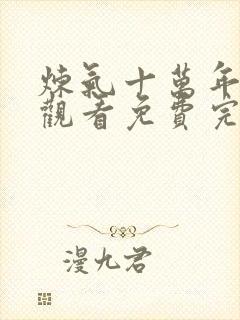 煉氣十萬年
觀看免費完
漫九君